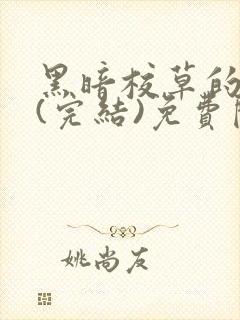 黑暗校草的
(完結)免費
姚尚友